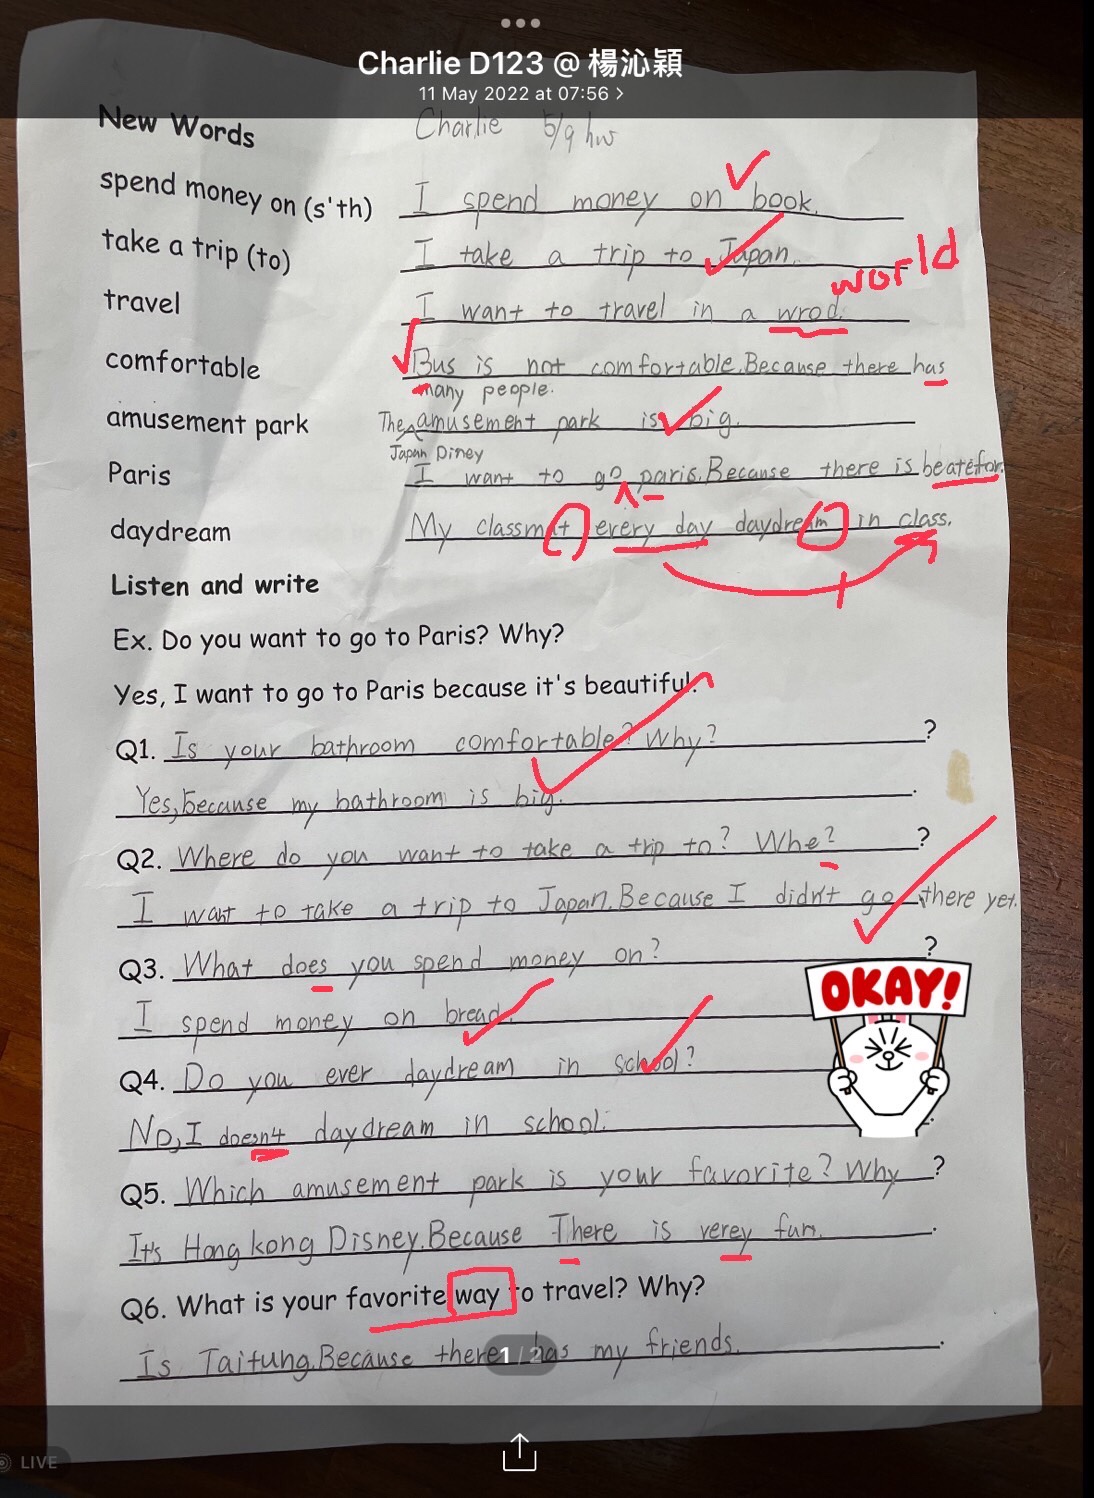 Charlie D123 @ 楊沁穎
11 May 2022 at 07:56 >
New Words Charlie 5/9 hw
spend money on (s'th) I spend money on book.
take a trip (to) I take a trip to Japan.
world
travel I want to travel in a wrod.
comfortable Bus is not comfortable. Because there has
many people.
amusement park The amusement park is big.
Japan Diney
Paris I want to go paris. Because there is beatefor.
daydream My classmat every day daydream in class.
Listen and write
Ex. Do you want to go to Paris? Why?
Yes, I want to go to Paris because it's beautiful.
Q1. Is your bathroom comfortable? Why? ?
Yes, because my bathroom is big. .
Q2. Where do you want to take a trip to? Whe? ?
I want to take a trip to Japan. Because I didn't go there yet.
Q3. What does you spend money on? ?
I spend money on bread.
OKAY!
Q4. Do you ever daydream in school?
No, I doesn't daydream in school. .
Q5. Which amusement park is your favorite? Why ?
It's Hong kong Disney. Because There is verey fun. .
Q6. What is your favorite way to travel? Why?
Is Taitung. Because there has my friends. .
1 / 2
LIVE